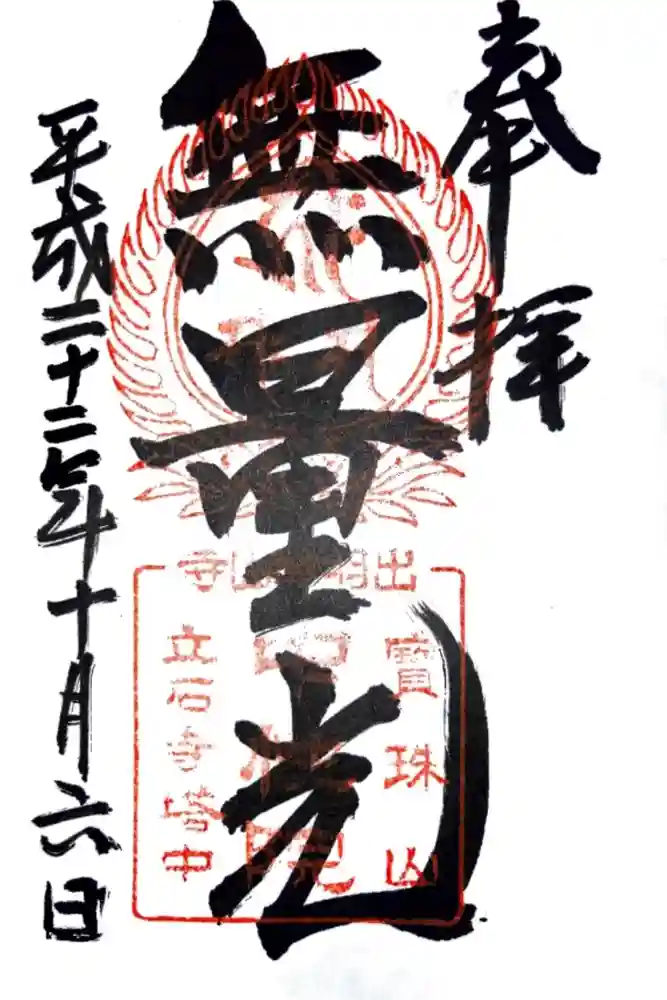 奉拝
無量光
平成二十二年十月六日
出羽 山寺
寶珠山
立石寺塔中